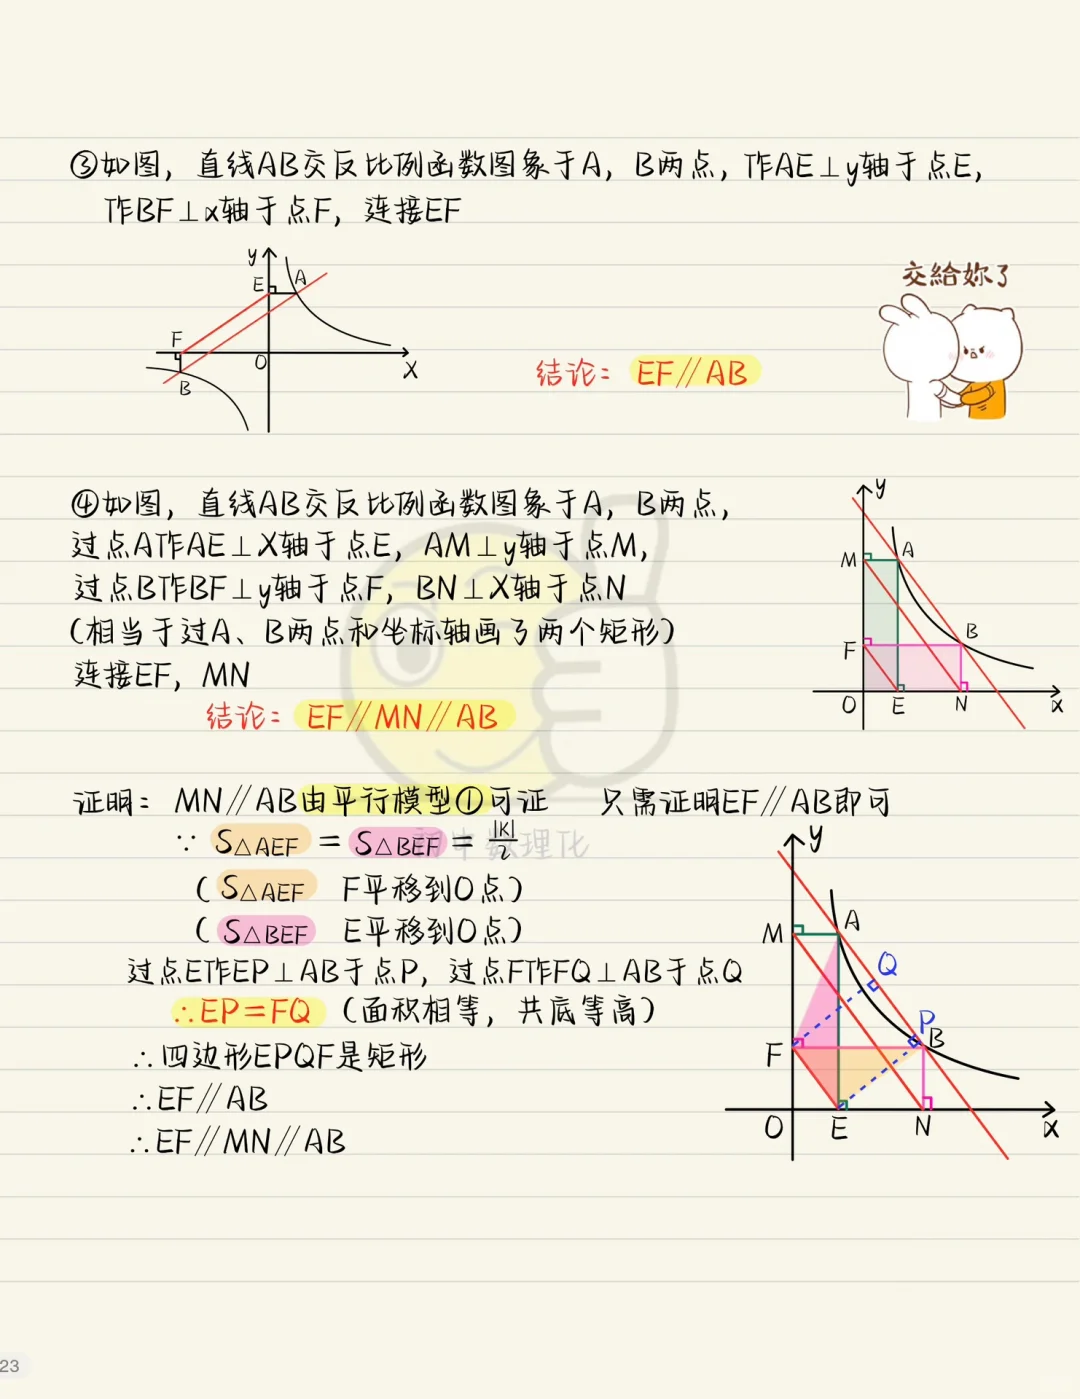 ③如图，直线AB交反比例函数图象于A，B两点，作AE⊥y轴于点E，
作BF⊥x轴于点F，连接EF
y
E
A
F
O
X
B
结论：EF∥AB
交給妳了
④如图，直线AB交反比例函数图象于A，B两点，
过点A作AE⊥X轴于点E，AM⊥y轴于点M，
过点B作BF⊥y轴于点F，BN⊥X轴于点N
(相当于过A、B两点和坐标轴画了两个矩形)
连接EF，MN
结论：EF∥MN∥AB
y
M
A
B
F
O
E
N
x
证明：MN∥AB由平行模型①可证 只需证明EF∥AB即可
∵ S△AEF = S△BEF = |K|/2
(S△AEF F平移到O点)
(S△BEF E平移到O点)
过点E作EP⊥AB于点P，过点F作FQ⊥AB于点Q
∴EP=FQ (面积相等，共底等高)
∴四边形EPQF是矩形
∴EF∥AB
∴EF∥MN∥AB
y
M
A
Q
P
B
F
O
E
N
x
初中数理化
23